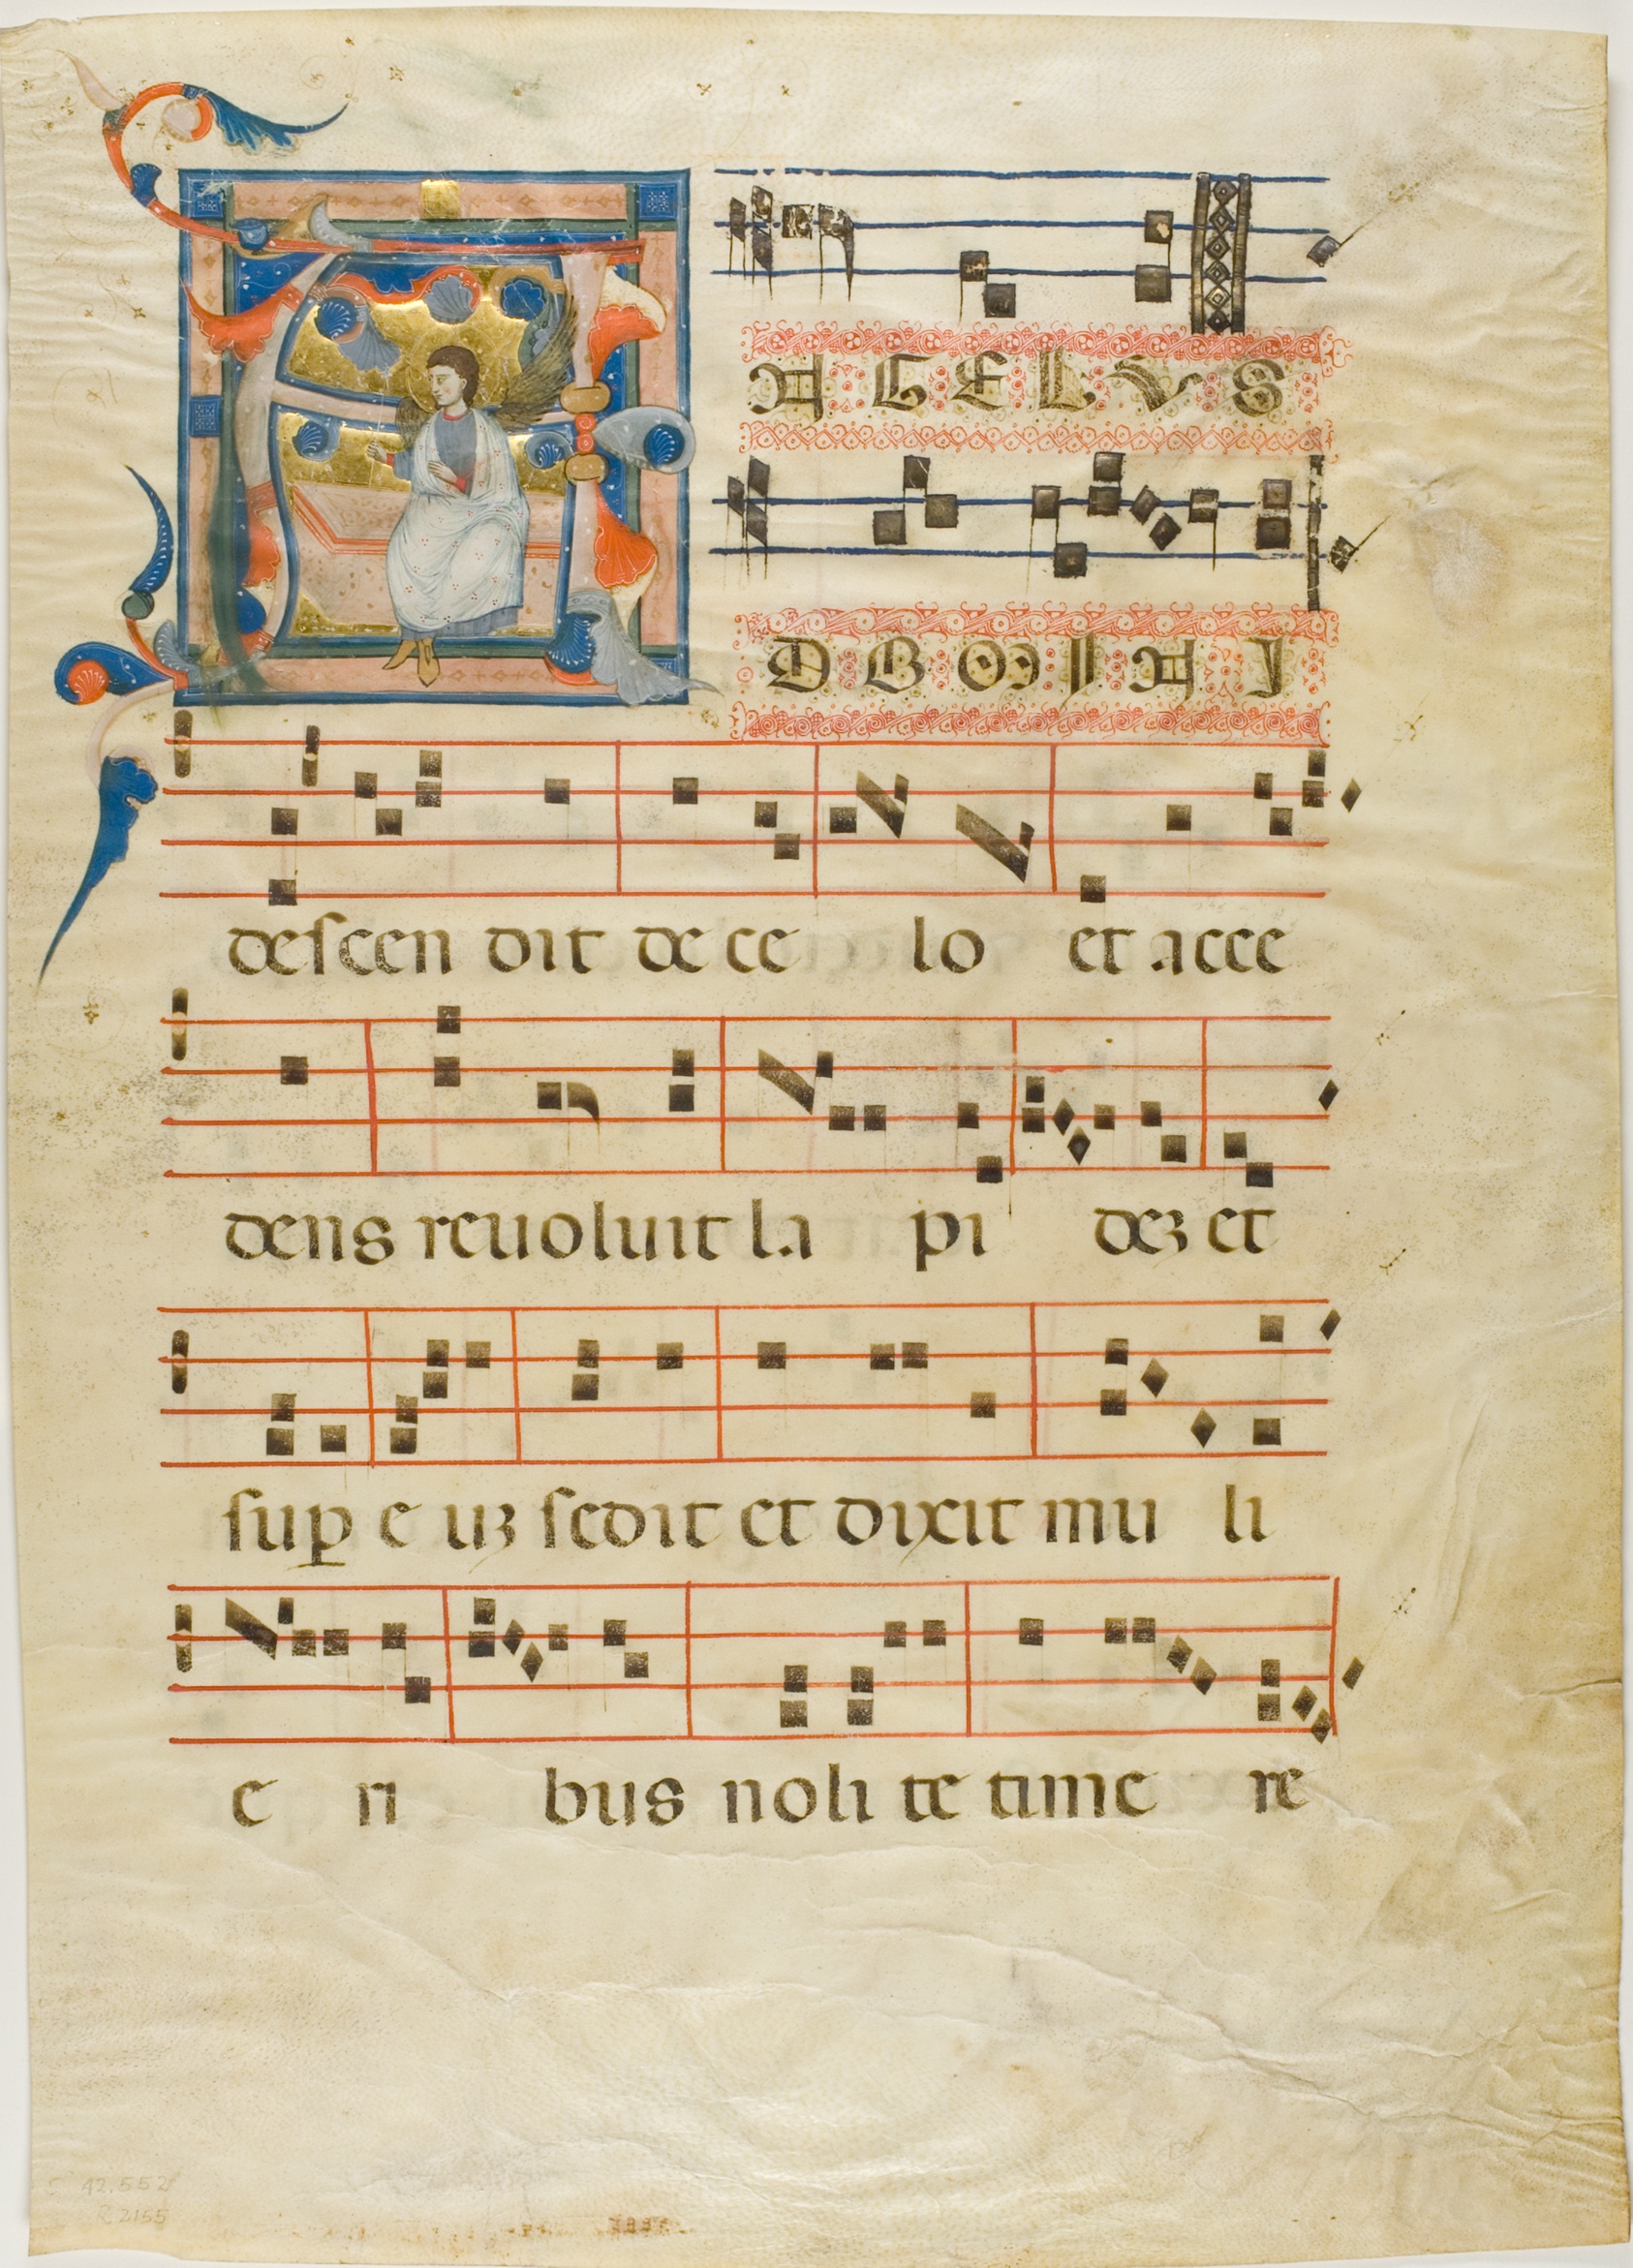 A NGELVS
DOMINI
descen dit de ce lo et acce
dens reuoluit la pi deʒ et
suꝑ e uʒ sedit et dixit mu li
e ri bus noli te time re
42.552
R2155